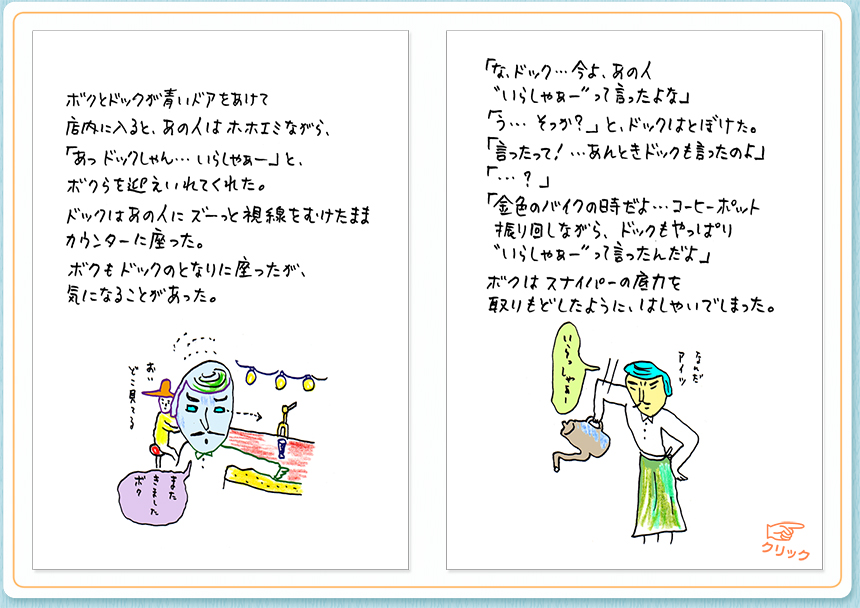 ボクとドックが青いドアをあけて
店内に入ると、あの人はホホエミながら、
「あっ ドックしゃん… いらしゃぁー」と、
ボクらを迎えいれてくれた。
ドックはあの人に ズーっと視線をむけたまま
カウンターに座った。
ボクもドックのとなりに座ったが、
気になることがあった。
おい
どこ見てる
また
きました
ボク
「な、ドック…今よ、あの人
"いらしゃぁー"って言ったよな」
「う… そっか？」と、ドックはとぼけた。
「言ったって！…あんときドックも言ったのよ」
「…？」
「金色のバイクの時だよ…コーヒーポット
振り回しながら、ドックもやっぱり
"いらしゃぁー"って言ったんだよ」
ボクは スナイパーの底力を
取りもどしたように、はしゃいでしまった。
いらっしゃぁー
なんだ
アイツ
クリック